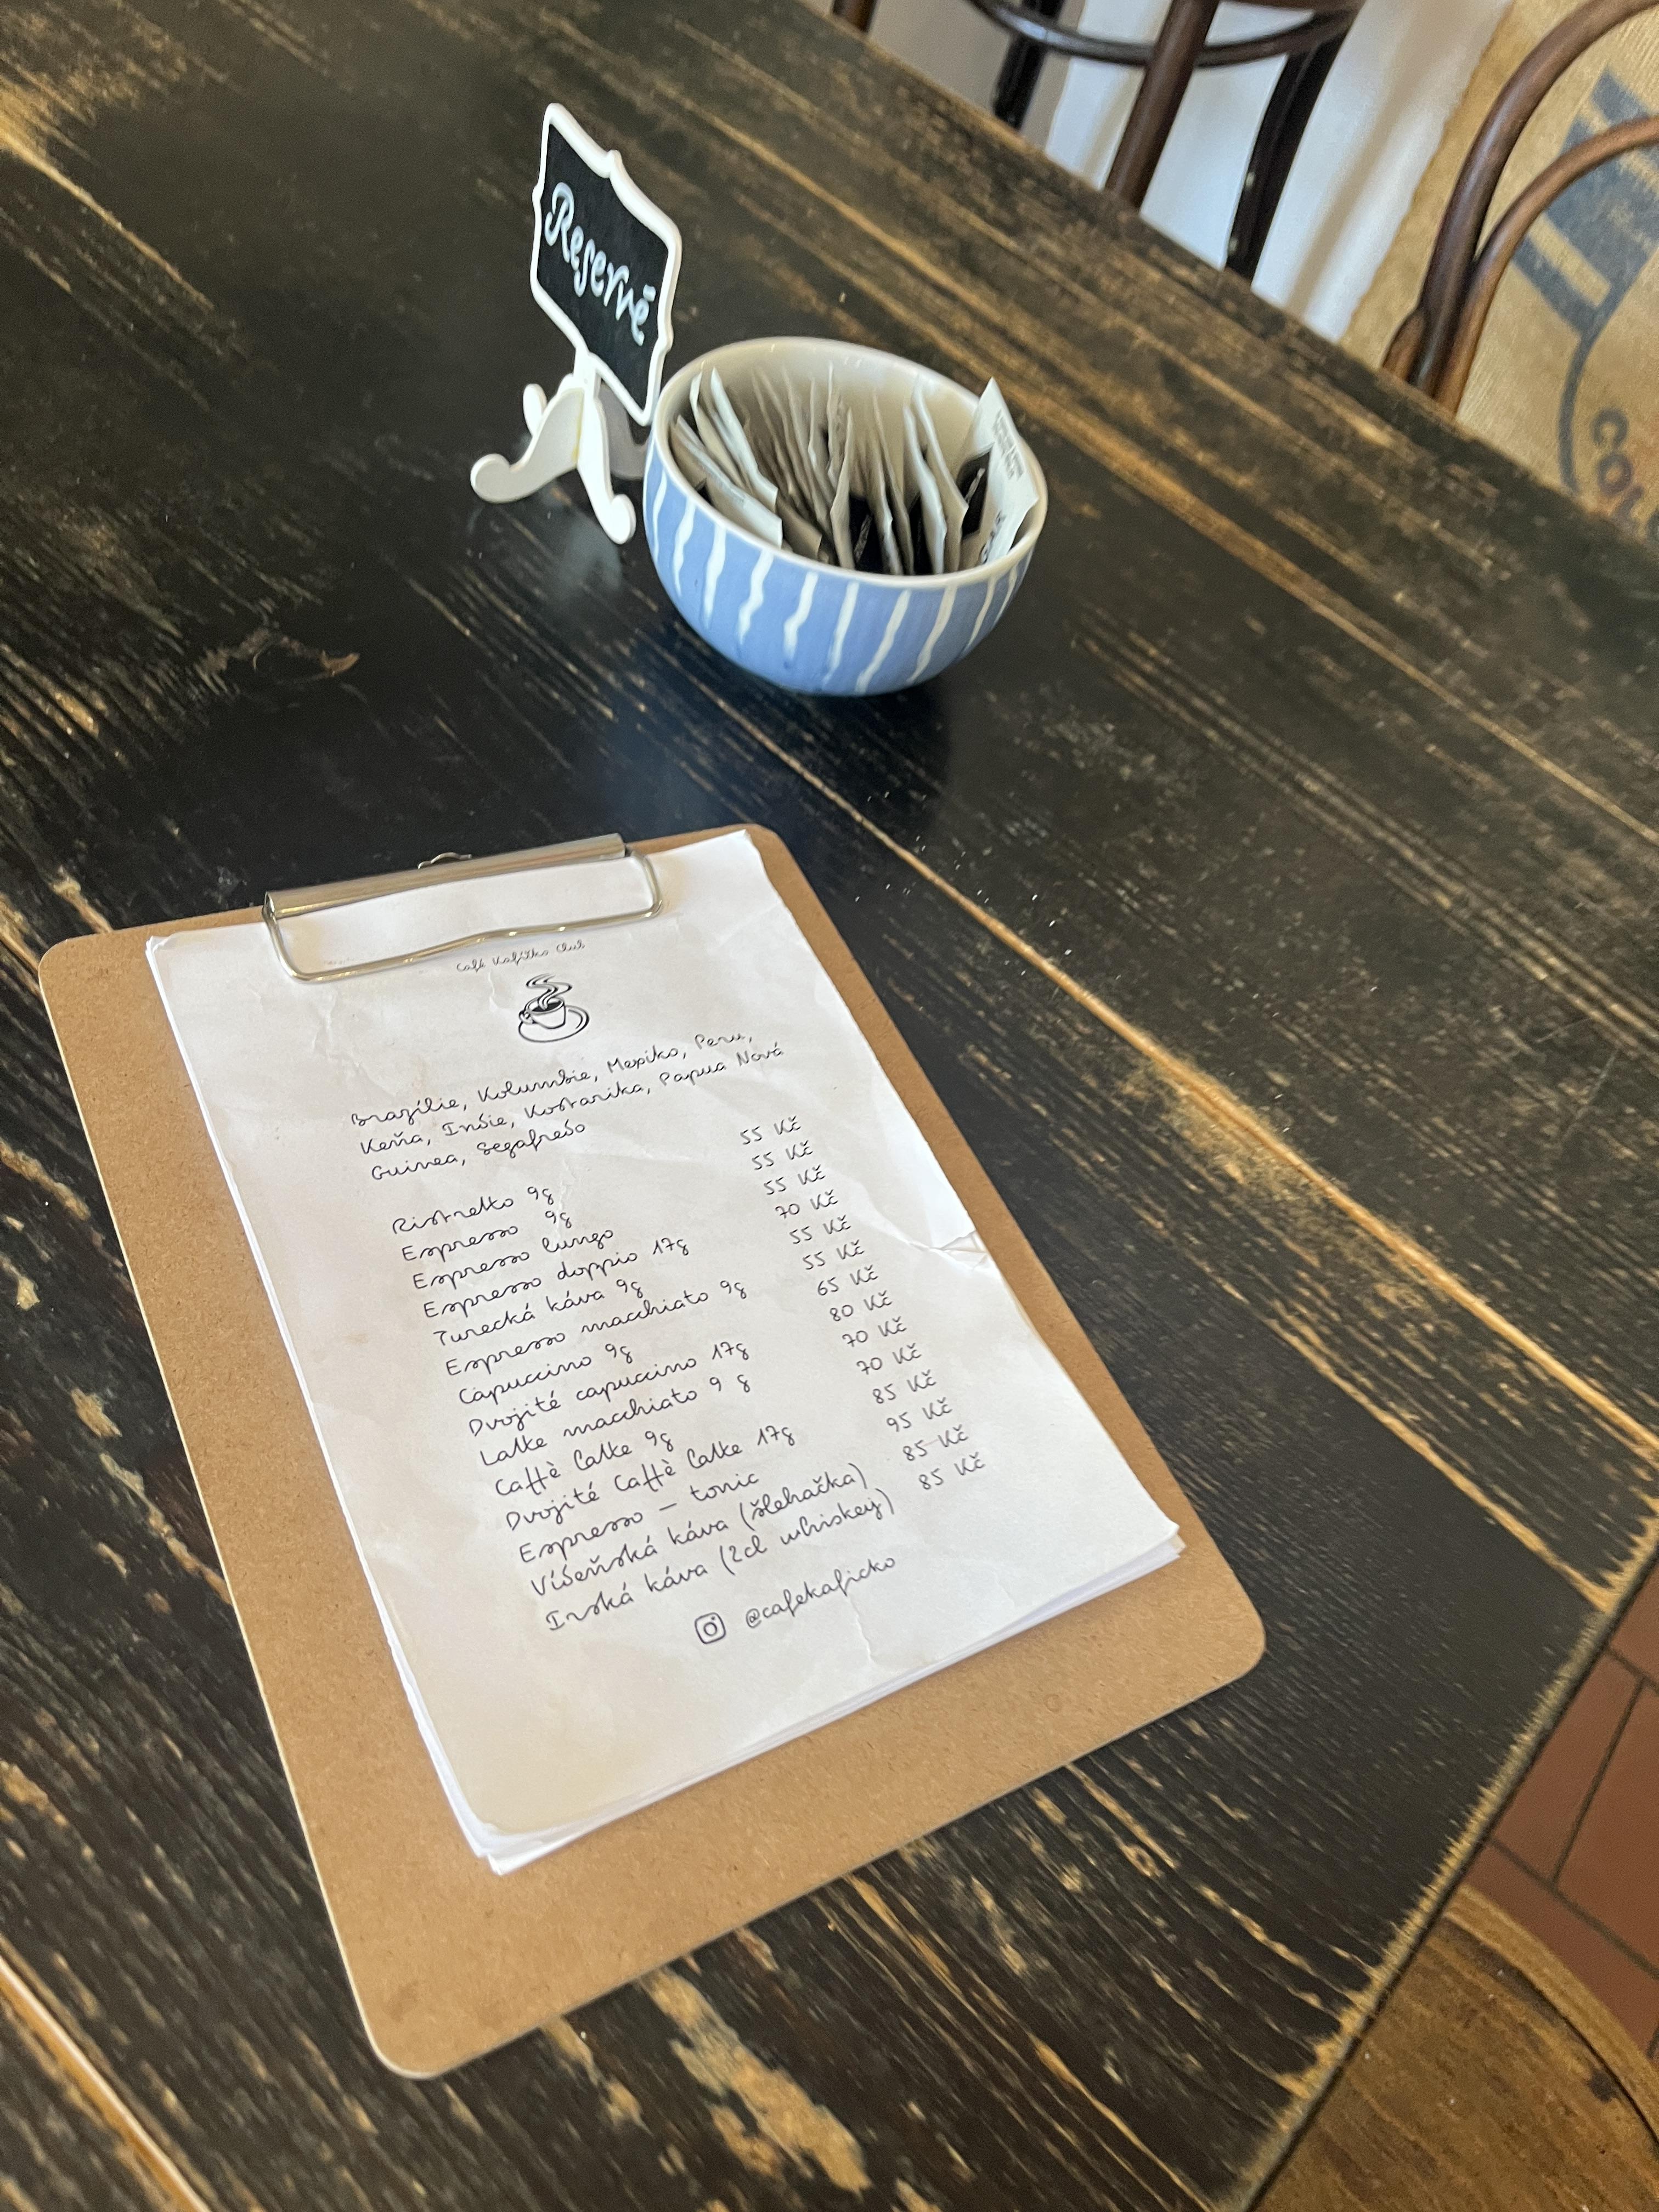 Reservé
Café Kafíčko Club
Brazílie, Kolumbie, Mexiko, Peru,
Keňa, Indie, Kostarika, Papua Nová
Guinea, Segafredo
Ristretto 9g 55 Kč
Espresso 9g 55 Kč
Espresso lungo 55 Kč
Espresso doppio 17g 70 Kč
Turecká káva 9g 55 Kč
Espresso macchiato 9g 55 Kč
Capuccino 9g 65 Kč
Dvojité capuccino 17g 80 Kč
Latte macchiato 9 g 70 Kč
Caffè Latte 9g 70 Kč
Dvojité Caffè Latte 17g 85 Kč
Espresso – tonic 95 Kč
Vídeňská káva (šlehačka) 85 Kč
Irská káva (2cl whiskey) 85 Kč
@cafekaficko